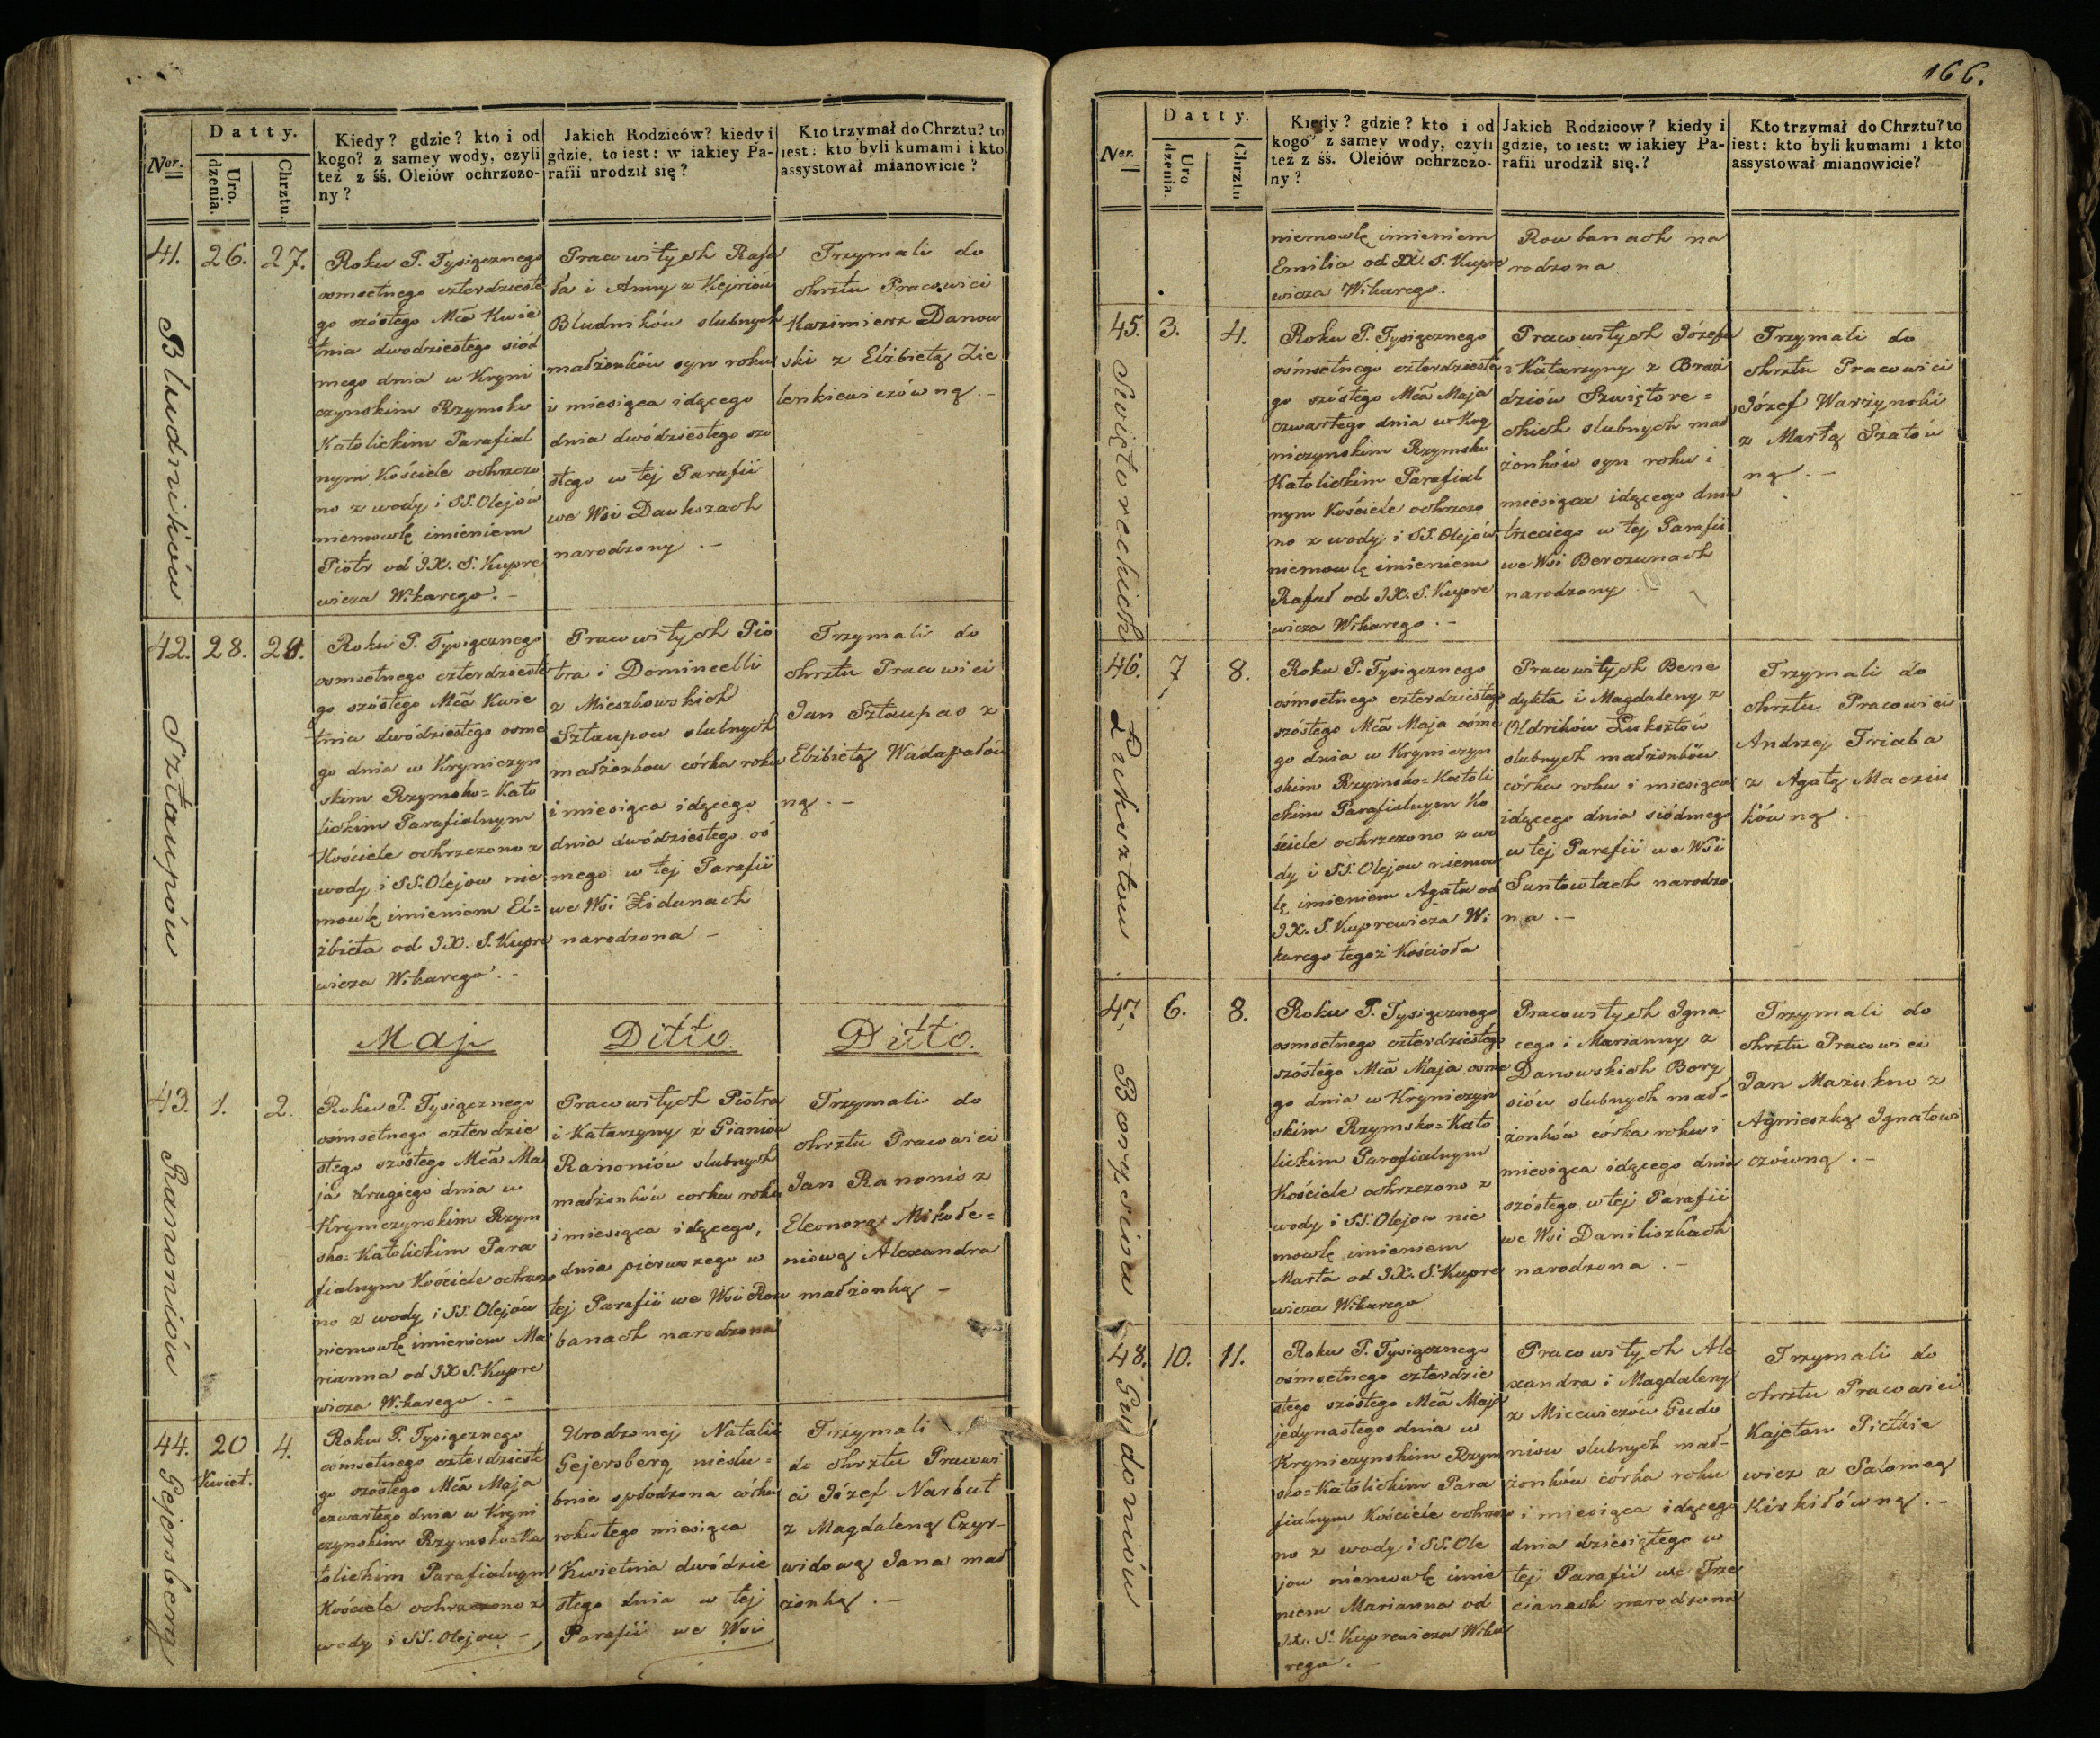 Ner.
Datty.
Uro.
dzenia.
Chrztu.
Kiedy? gdzie? kto i od
kogo? z samey wody, czyli
też z śś. Oleiów ochrzczo-
ny?
Jakich Rodziców? kiedy i
gdzie, to iest: w iakiey Pa-
rafii urodził się?
Kto trzymał do Chrztu? to
iest: kto byli kumami i kto
assystował mianowicie?
41.
Bludników
26.
27.
Roku P. Tysiącznego
osmsetnego czterdzieste
go szóstego Mca Kwie
tnia dwodziestego siód
mego dnia w Kryni
czynskim Rzymsko
Katolickim Parafial
nym Kościele ochrzczo
no z wody i SS. Olejów
niemowlę imieniem
Piotr od J.X. S. Kupre
wicza Wikarego. –
Pracowitych Rafa
ła i Anny z Kiejriów
Bludników slubnych
małżonków syn roku
i miesiąca idącego
dnia dwódziestego szo
stego w tej Parafii
we Wsi Daukszach
narodzony. –
Trzymali do
chrztu Pracowici
Kazimierz Danow
ski z Elżbietą Zie
lenkiewiczówną. –
42.
Sztaupów
28.
28.
Roku P. Tysiącznego
osmsetnego czterdzieste
go szóstego Mca Kwie
tnia dwódziestego osme
go dnia w Kryniczyn
skim Rzymsko=Kato
lickim Parafialnym
Kościele ochrzczono z
wody i SS. Olejow nie
mowlę imieniem El=
żbieta od J.X. S. Kupre
wicza Wikarego. –
Pracowitych Pio
tra i Domincelli
z Mieszkowskich
Sztaupow slubnych
małżonkow córka roku
i miesiąca idącego
dnia dwódziestego oś
mego w tej Parafii
we Wsi Zidunach
narodzona –
Trzymali do
chrztu Pracowici
Jan Sztaupas z
Elżbietą Wadapałów
ną. –
Maj
Ditto.
Ditto.
43.
Ranoniów
1.
2.
Roku P. Tysiącznego
ośmsetnego czterdzie
stego szóstego Mca Ma
ja drugiego dnia w
Kryniczynskim Rzym
sko=Katolickim Para
fialnym Kościele ochrzczo
no z wody i SS. Olejów
niemowlę imieniem Ma
rianna od JX S. Kupre
wicza Wikarego. –
Pracowitych Piotra
i Katarzyny z Pianiów
Ranoniów slubnych
małżonków corka roku
i miesiąca idącego,
dnia pierwszego w
tej Parafii we Wsi Row
banach narodzona
Trzymali do
chrztu Pracowici
Jan Ranonis z
Eleonorą Mikołe=
niową Alexandra
małżonką –
44.
Gejersberg
20
Kwiet.
4.
Roku P. Tysiącznego
ośmsetnego czterdzieste
go szóstego Mca Maja
czwartego dnia w Kryni
czynskim Rzymsko=Ka
tolickim Parafialnym
Kościele ochrzczono z
wody i SS. Olejow –
Urodzonej Natalii
Gejersberg nieslu=
bnie spłodzona córka
roku tego miesiąca
Kwietnia dwódzie
stego dnia w tej
Parafii we Wsi
Trzymali
do chrztu Pracowi
ci Józef Narbut
z Magdaleną Czyr-
widową Jana mał
żonką. –
166.
Ner.
Datty.
Uro
dzenia.
Chrztu
Kiedy? gdzie? kto i od
kogo? z samey wody, czyli
też z śś. Oleiów ochrzczo-
ny?
Jakich Rodzicow? kiedy i
gdzie, to iest: w iakiey Pa-
rafii urodził się.?
Kto trzymał do Chrztu? to
iest: kto byli kumami i kto
assystował mianowicie?
niemowlę imieniem
Emilia od JX. S. Kupre
wicza Wikarego.
Rowbanach na
rodzona
45.
Swiętoreckich
3.
4.
Roku P. Tysiącznego
ośmsetnego czterdzieste
go szóstego Mca Maja
czwartego dnia w Kry
niczynskim Rzymsko
Katolickim Parafial
nym Kościele ochrzczo
no z wody i SS. Olejów
niemowlę imieniem
Rafał od J.X. S. Kupre
wicza Wikarego. –
Pracowitych Józefa
i Katarzyny z Braź
dziów Szwiętore=
ckich slubnych mał
żonków syn roku i
miesiąca idącego dnia
trzeciego w tej Parafii
we Wsi Berczunach
narodzony
Trzymali do
chrztu Pracowici
Józef Warzynski
z Martą Szatów
ną. –
46.
Łuksztow
7
8.
Roku P. Tysiącznego
ośmsetnego czterdziestego
szóstego Mca Maja osme
go dnia w Kryniczyn
skim Rzymsko=Katoli
ckim Parafialnym Ko
ściele ochrzczono z wo
dy i SS. Olejow niemow
lę imieniem Agata od
J.X. S. Kuprewicza Wi
karego tegoż Kościoła
Pracowitych Bene
dykta i Magdaleny z
Oldrików Łuksztów
slubnych małżonków
córka roku i miesiąca
idącego dnia siódmego
w tej Parafii we Wsi
Suntowtach narodzo
na. –
Trzymali do
chrztu Pracowici
Andrzej Triaba
z Agatą Maciu
kówną. –
47.
Borysiow
6.
8.
Roku P. Tysiącznego
osmsetnego czterdziestego
szóstego Mca Maja osme
go dnia w Kryniczyn
skim Rzymsko=Kato
lickim Parafialnym
Kościele ochrzczono z
wody i SS. Olejow nie
mowlę imieniem
Marta od J.X. S. Kupre
wicza Wikarego
Pracowitych Igna
cego i Marianny z
Danowskich Bory
siów slubnych mał-
żonków córka roku i
miesiąca idącego dnia
szóstego w tej Parafii
we Wsi Daniliszkach
narodzona. –
Trzymali do
chrztu Pracowici
Jan Mażukno z
Agnieszką Ignatowi
czówną. –
48.
Gudoniów
10.
11.
Roku P. Tysiącznego
ośmsetnego czterdzie
stego szóstego Mca Maja
jedynastego dnia w
Kryniczynskim Rzym
sko=Katolickim Para
fialnym Kościele ochrzczo
no z wody i SS. Ole
jow niemowlę imie
niem Marianna od
JX. S. Kuprewicza Wika
rego. –
Pracowitych Ale
xandra i Magdaleny
z Micewiczów Gudo
niow slubnych mał-
żonków córka roku
i miesiąca idącego
dnia dziesiątego w
tej Parafii we Trze
cianach narodzona
Trzymali do
chrztu Pracowici
Kajetan Pietkie
wicz z Salomeą
Kirkiłówną. –